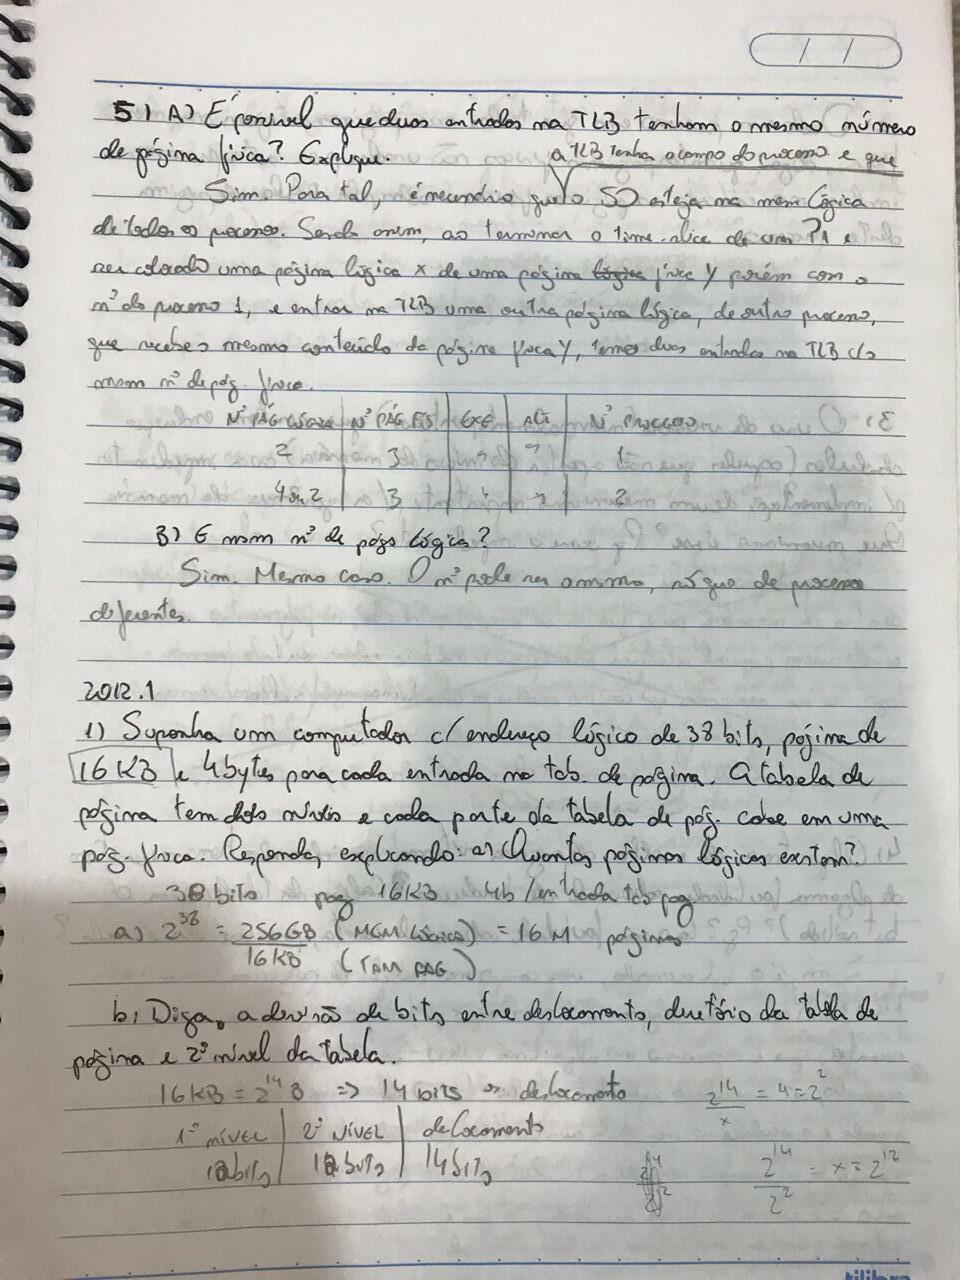 / /
5) A) É possível que duas entradas na TLB tenham o mesmo número
de página física? Explique.
a TLB tenha o campo do processo e que
Sim. Para tal, é necessário que o SO esteja na mem lógica
de todos os processos. Sendo assim, ao terminar o time-slice de um P1 e
ser colocado uma página lógica x de uma página física Y porém com o
nº do processo 1, e entrar na TLB uma outra página lógica, de outro processo,
que recebe o mesmo conteúdo da página física Y, temos duas entradas na TLB c/o
mesm nº de pág. física.
Nº PÁG LÓGICA | Nº PÁG FIS | EXE | ALT | Nº PROCESSO
2 | 3 | " | " | 1
4 ou 2 | 3 | " | " | 2
B) E mesm nº de págs lógica?
Sim. Mesmo caso. O nº pode ser o mesmo, só que de processos
diferentes.
2012.1
1) Suponha um computador c/ endereço lógico de 38 bits, página de
16 KB e 4 bytes para cada entrada na tab. de página. A tabela de
página tem dois níveis e cada parte da tabela de pág. cabe em uma
pág. física. Responda, explicando: a) Quantas páginas lógicas existem?
38 bits pag 16KB 4b/entrada tab pag
a) 2^38 = 256GB (MEM LÓGICA) = 16 M páginas
16KB (TAM PAG)
b) Diga, a divisão de bits entre deslocamento, diretório da tabela de
página e 2º nível da tabela.
16KB = 2^14 B => 14 bits → deslocamento
2^14/x = 4 = 2^2
1º NÍVEL | 2º NÍVEL | deslocamento
12 bits | 12 bits | 14 bits
2^14/2^2 = x = 2^12
tilibra